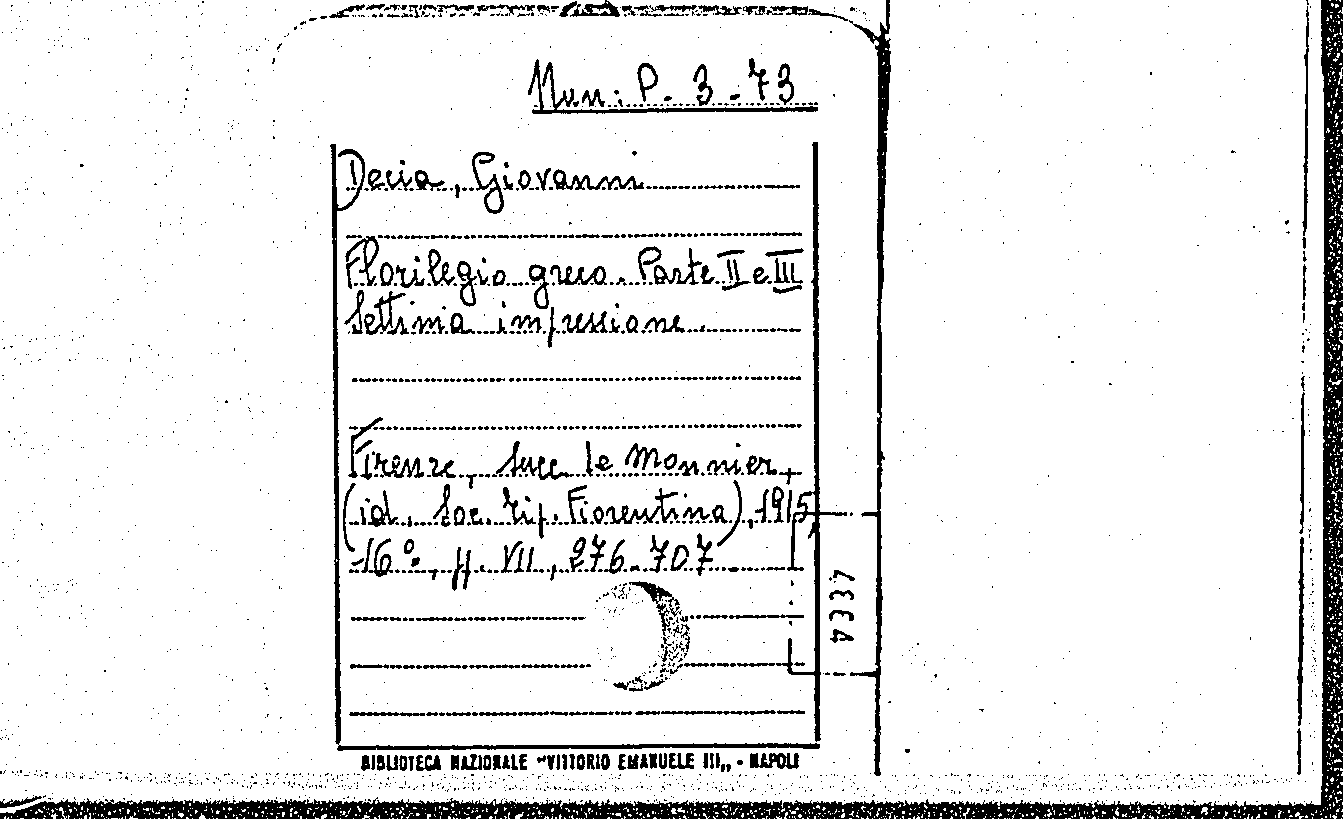 Nun: P. 3-73
Decia, Giovanni
Florilegio greco. Parte II e III
Settima impressione.
Firenze, Succ. le Monnier,
(id. Soc. Tip. Fiorentina), 1915
16º., pp. VII, 276-707.
4337
BIBLIOTECA NAZIONALE "VITTORIO EMANUELE III„ - NAPOLI